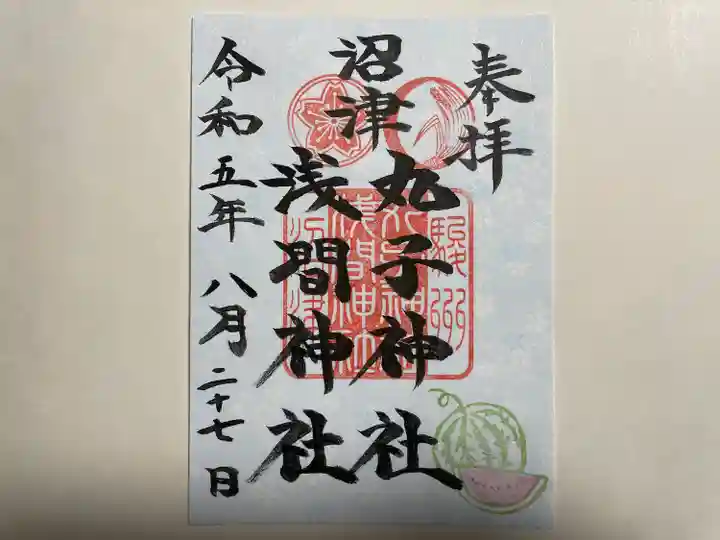 奉拝
沼津
丸子神社
浅間神社
令和五年八月二十七日
駿州
丸子神社
浅間神社